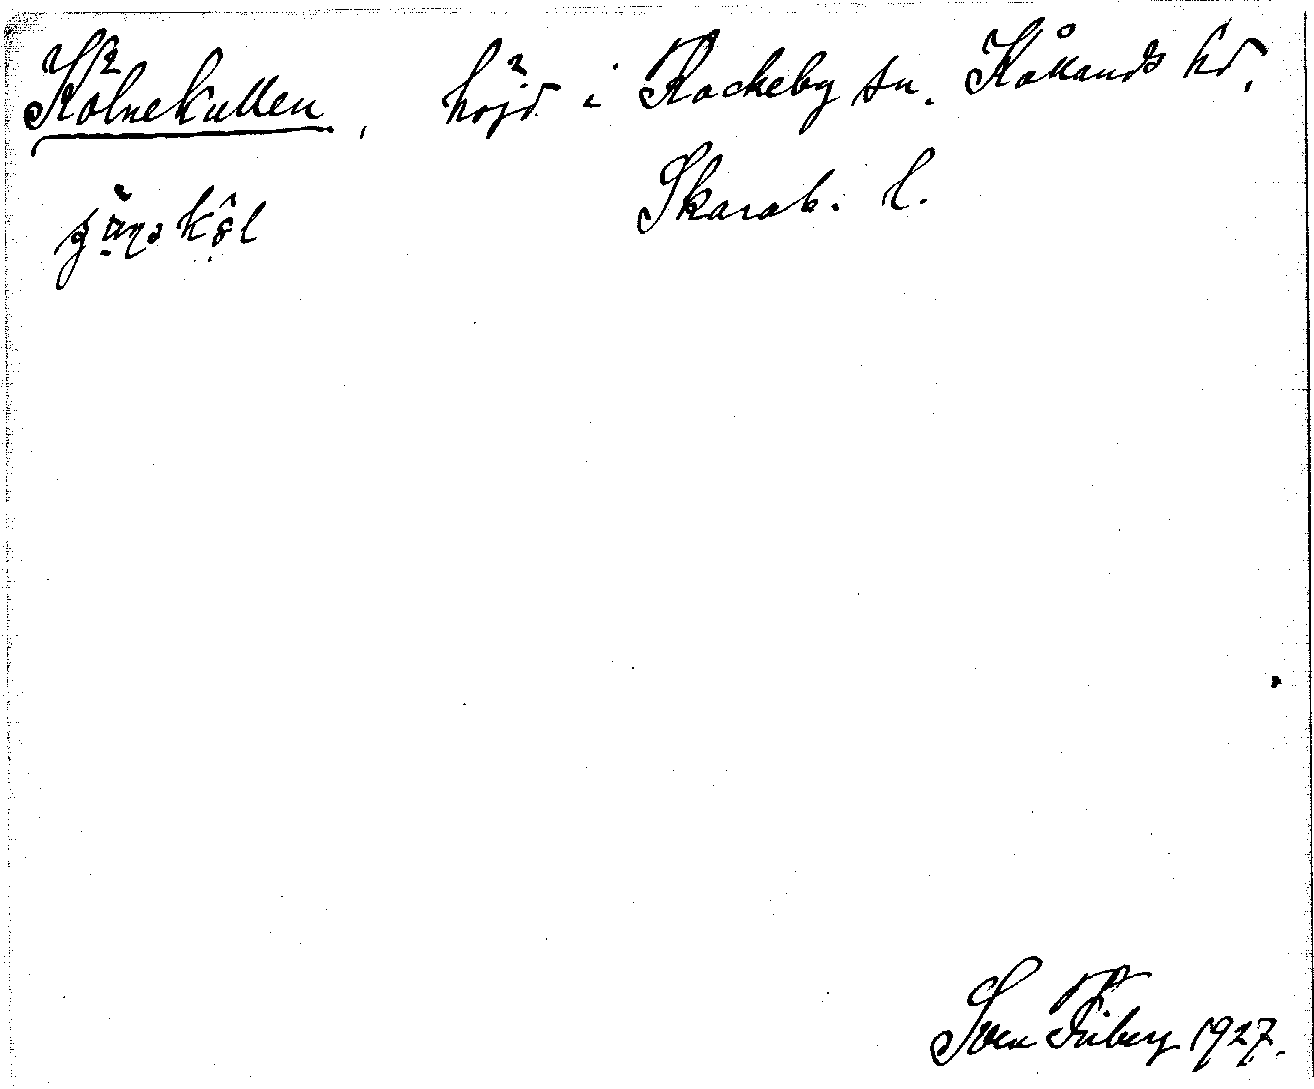 Kölnekullen, höjd i Rackeby sn. Kållands hd,
Skarab. l.
Sven Friberg 1927.